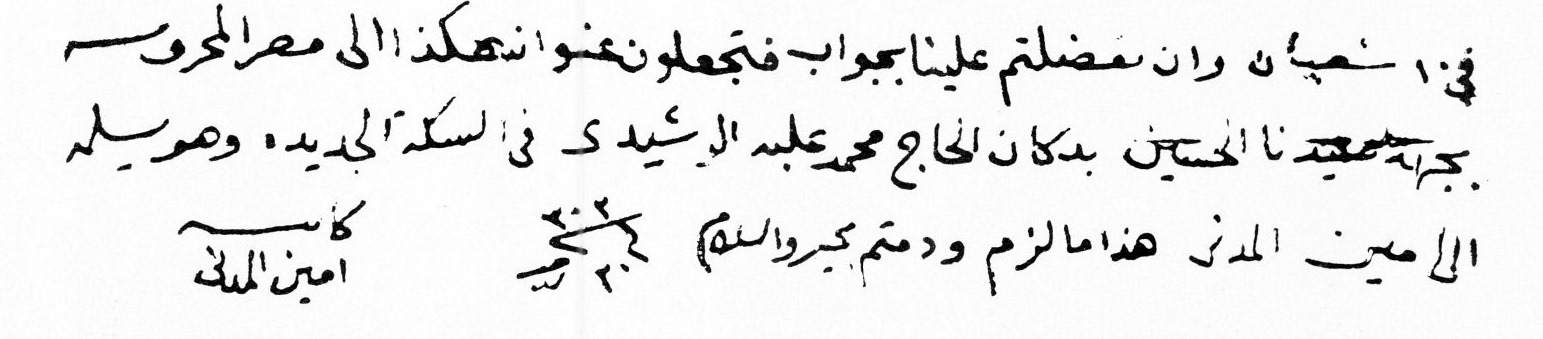 في ١٠ شعبان وان تفضلتم علينا بجواب فتجعلون عنوانه هكذا الى مصر المحروسه
بجهة سيدنا الحسين بدكان الحاج محمد علبه الرشيدى في السكة الجديده وهو يسلمه
الى امين المدنى هذا ما لزم ودمتم بخير والسلام
كاتبه
امين المدنى